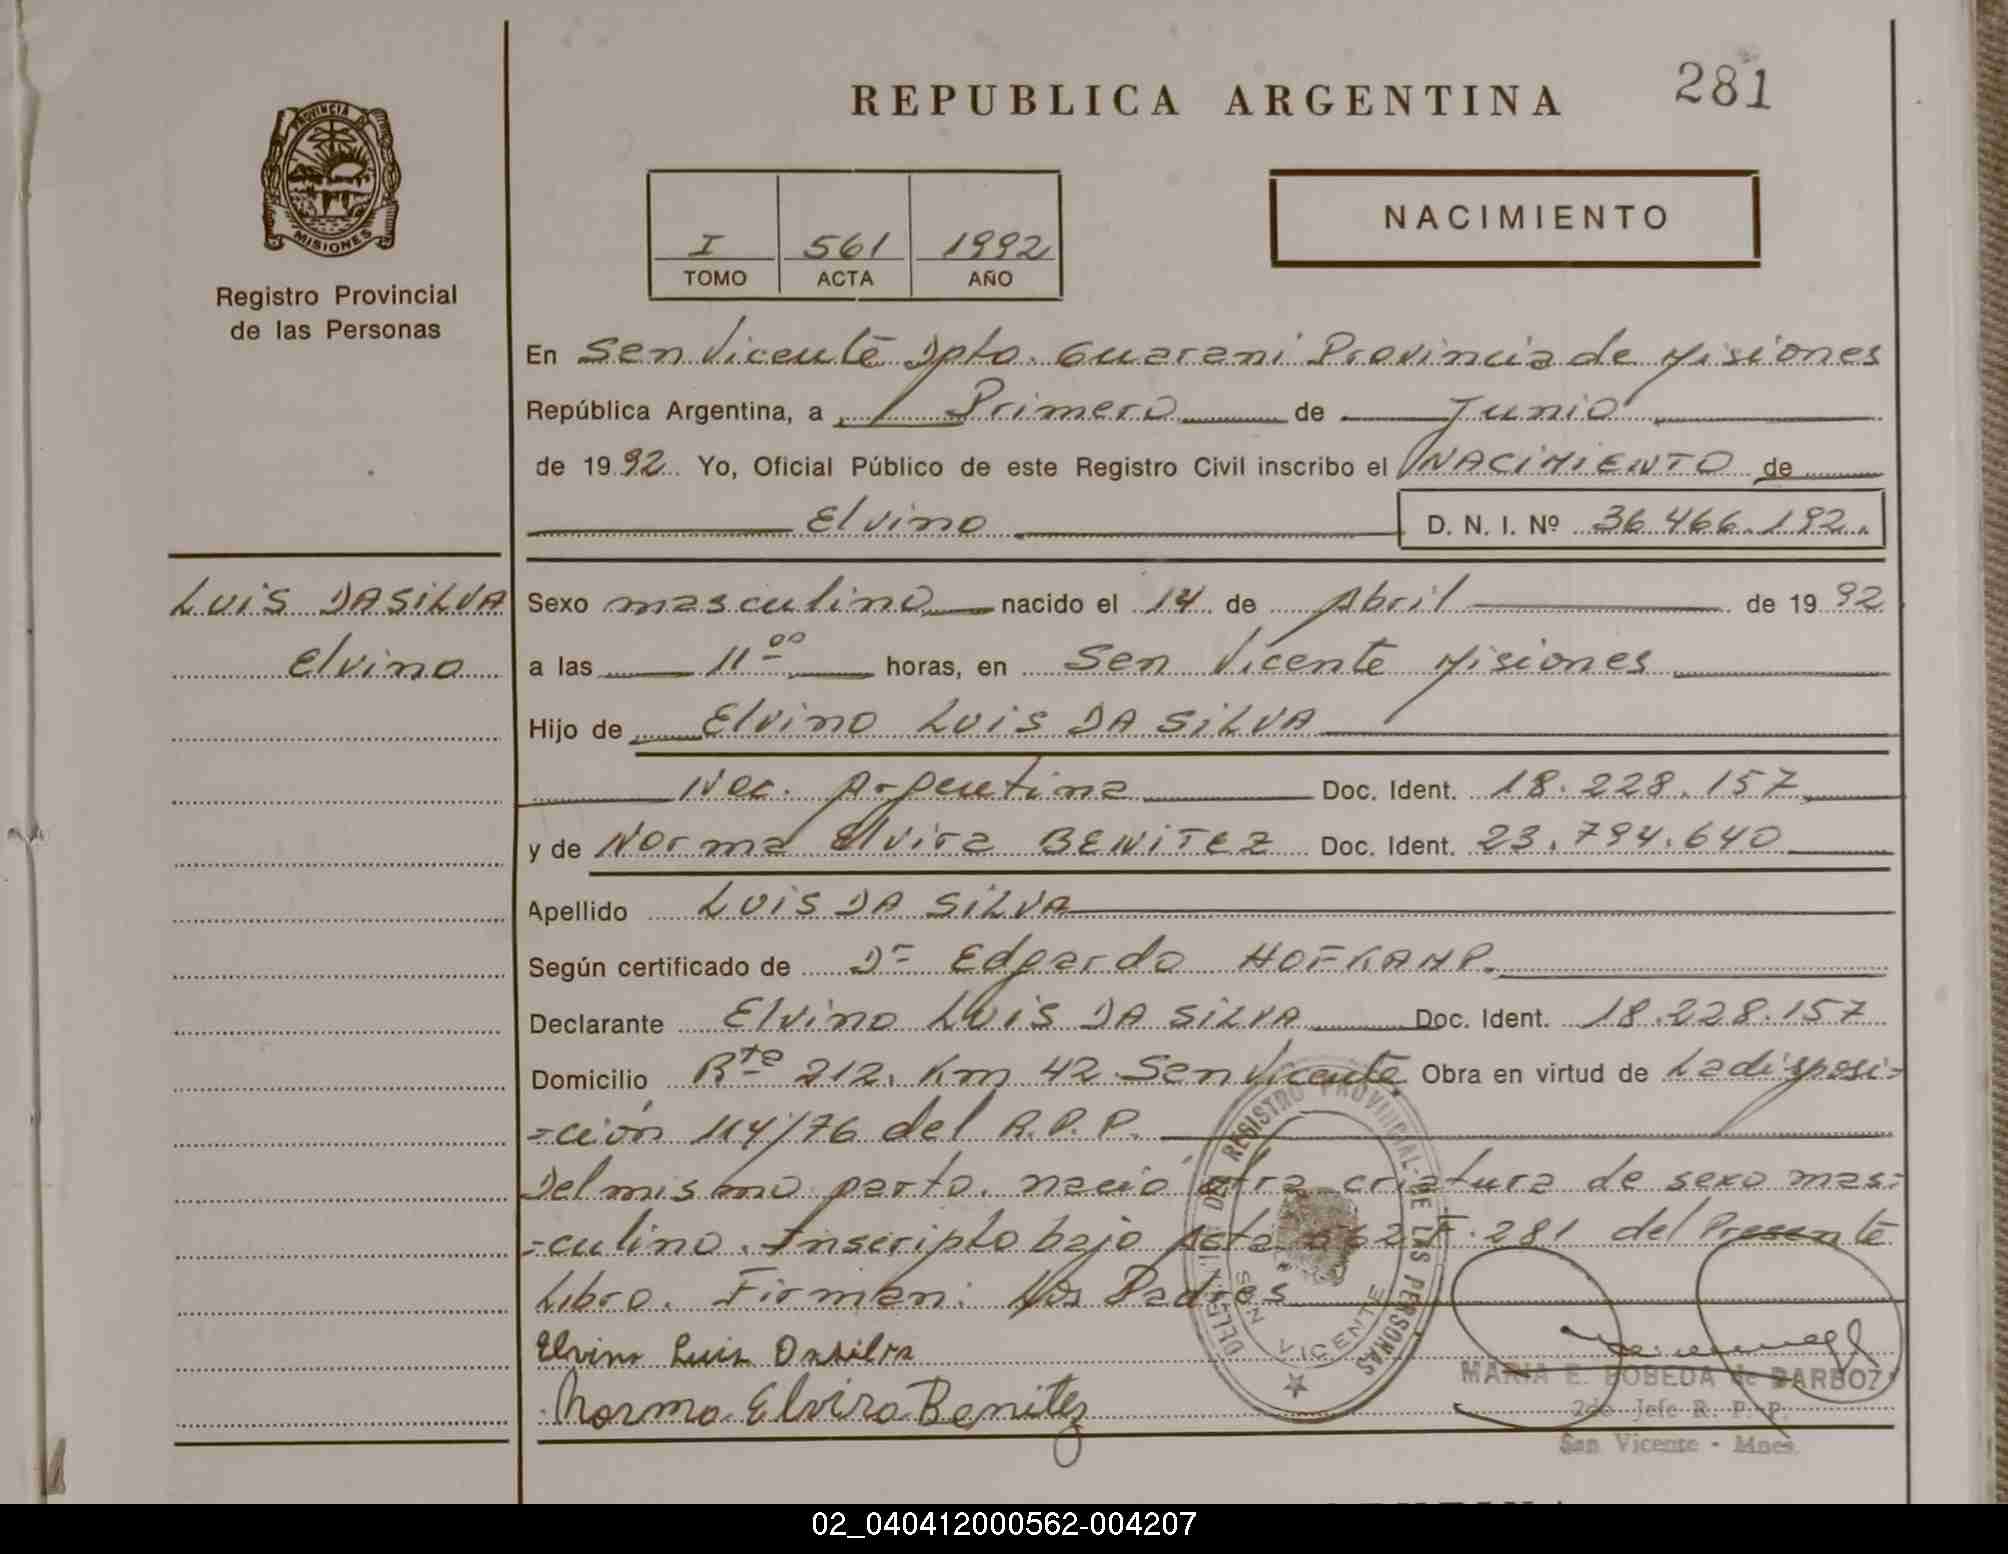 REPUBLICA ARGENTINA
281
PROVINCIA DE
MISIONES
Registro Provincial
de las Personas
I 561 1992
TOMO ACTA AÑO
NACIMIENTO
En San Vicente Dpto. Guarani Provincia de Misiones
República Argentina, a Primero de Junio
de 1992 Yo, Oficial Público de este Registro Civil inscribo el NACIMIENTO de
Elvino D. N. I. Nº 36.466.192.
LUIS DASILVA
Elvino
Sexo masculino nacido el 14 de Abril de 1992
a las 11 00 horas, en San Vicente Misiones
Hijo de Elvino LUIS DA SILVA
Nac. Argentina Doc. Ident. 18.228.157
y de Norma Elvira BENITEZ Doc. Ident. 23.794.640
Apellido LUIS DA SILVA
Según certificado de Dr Edgardo HOFKAMP.
Declarante Elvino LUIS DA SILVA Doc. Ident. 18.228.157
Domicilio Rta 212. Km 42 San Vicente. Obra en virtud de La disposi=
=ción 114/76 del R.P.P.
Del mismo parto. nació otra criatura de sexo mas=
=culino. Inscripto bajo Acta 562 F. 281 del Presente
Libro. Firman: Los Padres
Elvino Luis Dasilva
Norma Elvira Benitez
REGISTRO PROVINCIAL DE LAS PERSONAS
SAN VICENTE
MARIA E. BOBEDA de BARBOZA
2do Jefe R. P. P.
San Vicente - Mnes.
02_040412000562-004207